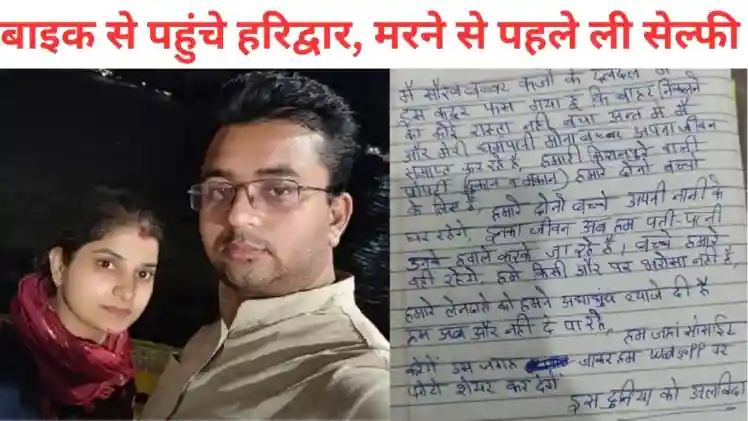 बाइक से पहुंचे हरिद्वार, मरने से पहले ली सेल्फी
मै सौरव बब्बर कर्जो के दलदल में
इस कदर फस गया हूं कि बाहर निकलने
का कोई रास्ता नही बचा अन्त मे मैं
और मेरी धर्मपत्नी मोना बब्बर अपना जीवन
समाप्त कर रहे है, हमारी किशनपुरे वाली
प्रोपर्टी (दुकान व मकान) हमारे दोनो बच्चो
के लिए है, हमारे दोनो बच्चे अपनी नानी के
घर रहेगे, इनका जीवन अब हम पती-पत्नी
उनके हवाले करके जा रहे है। बच्चे हमारे
वही रहेगे, हमे किसी और पर भरोसा नही है,
हमारे लेनदारो को हमने अंधाधुंध ब्याजे दी है
हम अब और नही दे पा रहे, हम जहां सोसाईट
करेगें उस जगह जाकर हम Whatsapp पर
फोटो शेयर कर देगें
इस दुनिया को अलविदा